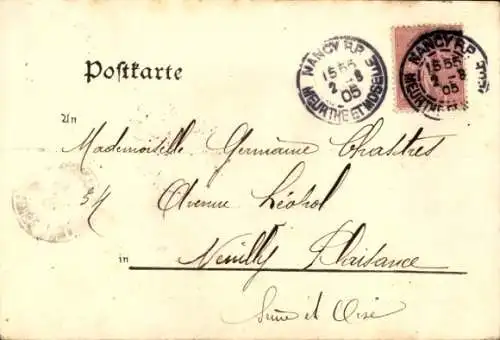 NANCY R.P.
15 55
2 - 8
05
MEURTHE ET MOSELLE
NANCY R.P.
15 55
2 - 8
05
Postkarte
An
Mademoiselle Germaine Chastres
34 Avenue
in Neuilly Plaisance
Seine et Oise